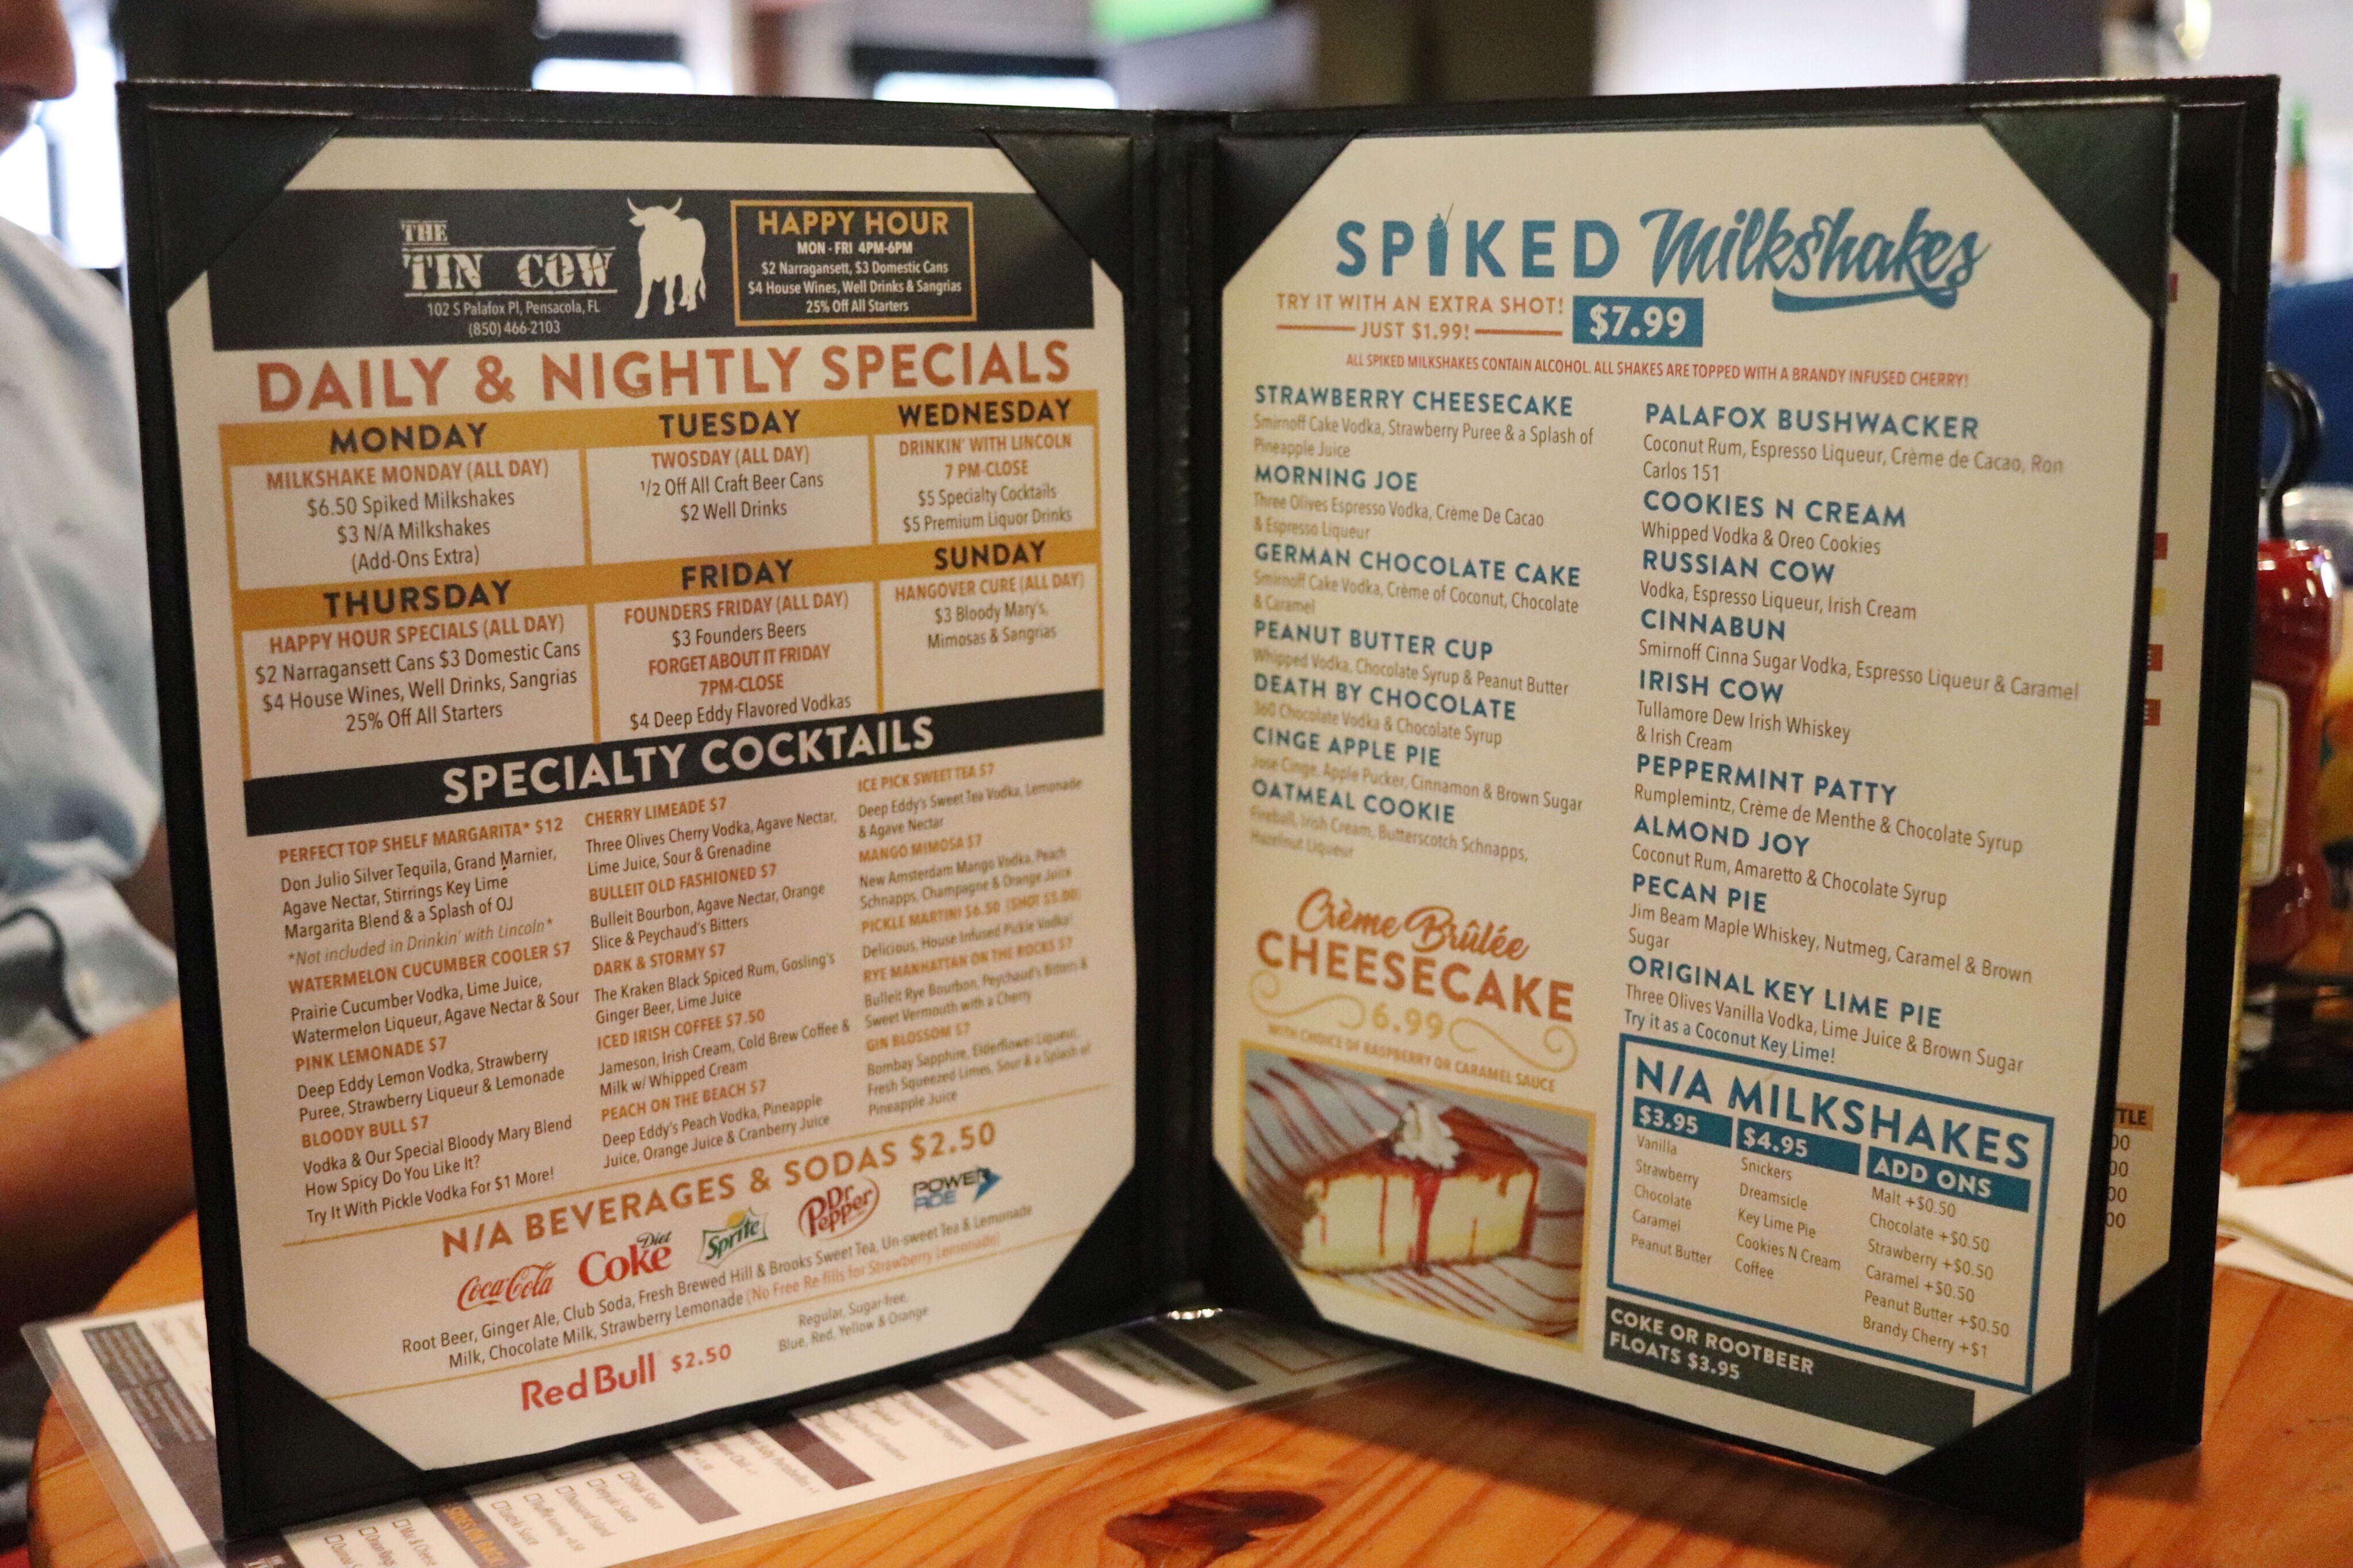 THE
TIN COW
102 S Palafox Pl, Pensacola, FL
(850) 466-2103
HAPPY HOUR
MON - FRI 4PM-6PM
$2 Narragansett, $3 Domestic Cans
$4 House Wines, Well Drinks & Sangrias
25% Off All Starters
DAILY & NIGHTLY SPECIALS
MONDAY
MILKSHAKE MONDAY (ALL DAY)
$6.50 Spiked Milkshakes
$3 N/A Milkshakes
(Add-Ons Extra)
TUESDAY
TWOSDAY (ALL DAY)
1/2 Off All Craft Beer Cans
$2 Well Drinks
WEDNESDAY
DRINKIN' WITH LINCOLN
7 PM-CLOSE
$5 Specialty Cocktails
$5 Premium Liquor Drinks
THURSDAY
HAPPY HOUR SPECIALS (ALL DAY)
$2 Narragansett Cans $3 Domestic Cans
$4 House Wines, Well Drinks, Sangrias
25% Off All Starters
FRIDAY
FOUNDERS FRIDAY (ALL DAY)
$3 Founders Beers
FORGET ABOUT IT FRIDAY
7PM-CLOSE
$4 Deep Eddy Flavored Vodkas
SUNDAY
HANGOVER CURE (ALL DAY)
$3 Bloody Mary's,
Mimosas & Sangrias
SPECIALTY COCKTAILS
PERFECT TOP SHELF MARGARITA* $12
Don Julio Silver Tequila, Grand Marnier,
Agave Nectar, Stirrings Key Lime
Margarita Blend & a Splash of OJ
*Not included in Drinkin' with Lincoln*
WATERMELON CUCUMBER COOLER $7
Prairie Cucumber Vodka, Lime Juice,
Watermelon Liqueur, Agave Nectar & Sour
PINK LEMONADE $7
Deep Eddy Lemon Vodka, Strawberry
Puree, Strawberry Liqueur & Lemonade
BLOODY BULL $7
Vodka & Our Special Bloody Mary Blend
How Spicy Do You Like It?
Try It With Pickle Vodka For $1 More!
CHERRY LIMEADE $7
Three Olives Cherry Vodka, Agave Nectar,
Lime Juice, Sour & Grenadine
BULLEIT OLD FASHIONED $7
Bulleit Bourbon, Agave Nectar, Orange
Slice & Peychaud's Bitters
DARK & STORMY $7
The Kraken Black Spiced Rum, Gosling's
Ginger Beer, Lime Juice
ICED IRISH COFFEE $7.50
Jameson, Irish Cream, Cold Brew Coffee &
Milk w/ Whipped Cream
PEACH ON THE BEACH $7
Deep Eddy's Peach Vodka, Pineapple
Juice, Orange Juice & Cranberry Juice
ICE PICK SWEET TEA $7
Deep Eddy's Sweet Tea Vodka, Lemonade
& Agave Nectar
MANGO MIMOSA $7
New Amsterdam Mango Vodka, Peach
Schnapps, Champagne & Orange Juice
PICKLE MARTINI $6.50 (SHOT $3.00)
Delicious, House Infused Pickle Vodka!
RYE MANHATTAN ON THE ROCKS $7
Bulleit Rye Bourbon, Peychaud's Bitters &
Sweet Vermouth with a Cherry
GIN BLOSSOM $7
Bombay Sapphire, Elderflower Liqueur,
Fresh Squeezed Limes, Sour & a Splash of
Pineapple Juice
N/A BEVERAGES & SODAS $2.50
Coca-Cola
Diet
Coke
Sprite
Dr Pepper
POWERADE
Root Beer, Ginger Ale, Club Soda, Fresh Brewed Hill & Brooks Sweet Tea, Un-sweet Tea & Lemonade
Milk, Chocolate Milk, Strawberry Lemonade (No Free Re-fills for Strawberry Lemonade)
Red Bull $2.50
Regular, Sugar-free,
Blue, Red, Yellow & Orange
SPIKED Milkshakes
TRY IT WITH AN EXTRA SHOT!
JUST $1.99!
$7.99
ALL SPIKED MILKSHAKES CONTAIN ALCOHOL. ALL SHAKES ARE TOPPED WITH A BRANDY INFUSED CHERRY!
STRAWBERRY CHEESECAKE
Smirnoff Cake Vodka, Strawberry Puree & a Splash of
Pineapple Juice
MORNING JOE
Three Olives Espresso Vodka, Crème De Cacao
& Espresso Liqueur
GERMAN CHOCOLATE CAKE
Smirnoff Cake Vodka, Crème of Coconut, Chocolate
& Caramel
PEANUT BUTTER CUP
Whipped Vodka, Chocolate Syrup & Peanut Butter
DEATH BY CHOCOLATE
360 Chocolate Vodka & Chocolate Syrup
CINGE APPLE PIE
Jose Cinge, Apple Pucker, Cinnamon & Brown Sugar
OATMEAL COOKIE
Fireball, Irish Cream, Butterscotch Schnapps,
Hazelnut Liqueur
Crème Brûlée
CHEESECAKE
6.99
WITH CHOICE OF RASPBERRY OR CARAMEL SAUCE
PALAFOX BUSHWACKER
Coconut Rum, Espresso Liqueur, Crème de Cacao, Ron
Carlos 151
COOKIES N CREAM
Whipped Vodka & Oreo Cookies
RUSSIAN COW
Vodka, Espresso Liqueur, Irish Cream
CINNABUN
Smirnoff Cinna Sugar Vodka, Espresso Liqueur & Caramel
IRISH COW
Tullamore Dew Irish Whiskey
& Irish Cream
PEPPERMINT PATTY
Rumplemintz, Crème de Menthe & Chocolate Syrup
ALMOND JOY
Coconut Rum, Amaretto & Chocolate Syrup
PECAN PIE
Jim Beam Maple Whiskey, Nutmeg, Caramel & Brown
Sugar
ORIGINAL KEY LIME PIE
Three Olives Vanilla Vodka, Lime Juice & Brown Sugar
Try it as a Coconut Key Lime!
N/A MILKSHAKES
$3.95
Vanilla
Strawberry
Chocolate
Caramel
Peanut Butter
$4.95
Snickers
Dreamsicle
Key Lime Pie
Cookies N Cream
Coffee
ADD ONS
Malt +$0.50
Chocolate +$0.50
Strawberry +$0.50
Caramel +$0.50
Peanut Butter +$0.50
Brandy Cherry +$1
COKE OR ROOTBEER
FLOATS $3.95